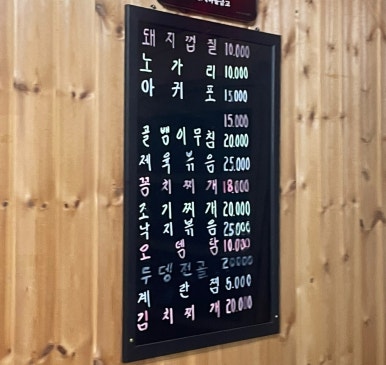 돼지껍질 10.000
노가리 10.000
아귀포 15.000
15.000
골뱅이무침 20.000
제육볶음 25.000
꽁치찌개 18.000
조기찌개 20.000
낙지볶음 25.000
오뎅탕 10.000
두뎅전골 20000
계란찜 5.000
김치찌개 20.000